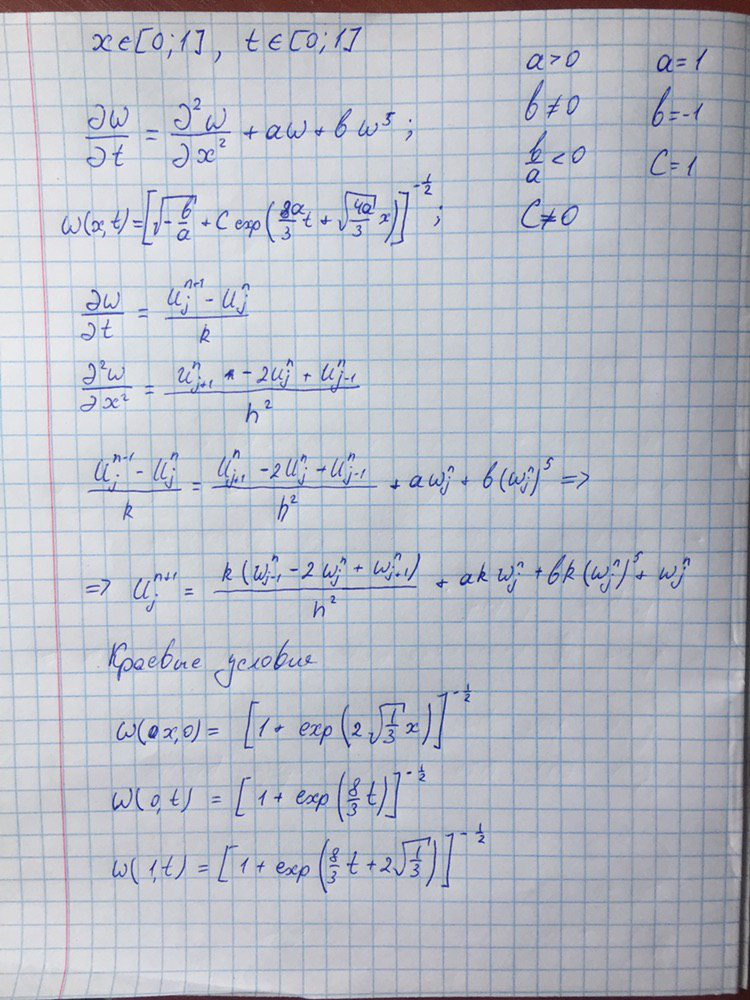 x∈[0;1], t∈[0;1]
a>0 a=1
b≠0 b=-1
b/a<0 C=1
C≠0
∂w/∂t = ∂²w/∂x² + aw + bw⁵;
w(x,t)=[√(-b/a) + C exp(8a/3 t + √(4a/3) x)]^(-1/2);
∂w/∂t = (u_j^(n+1) - u_j^n)/k
∂²w/∂x² = (u_(j+1)^n - 2u_j^n + u_(j-1)^n)/h²
(u_j^(n-1) - u_j^n)/k = (u_(j+1)^n - 2u_j^n + u_(j-1)^n)/h² + aw_j^n + b(w_j^n)^5 =>
=> u_j^(n+1) = k(w_(j-1)^n - 2w_j^n + w_(j+1)^n)/h² + akw_j^n + bk(w_j^n)^5 + w_j^n
Краевые условия
w(x,0) = [1 + exp(2√(1/3) x)]^(-1/2)
w(0,t) = [1 + exp(8/3 t)]^(-1/2)
w(1,t) = [1 + exp(8/3 t + 2√(1/3))]^(-1/2)